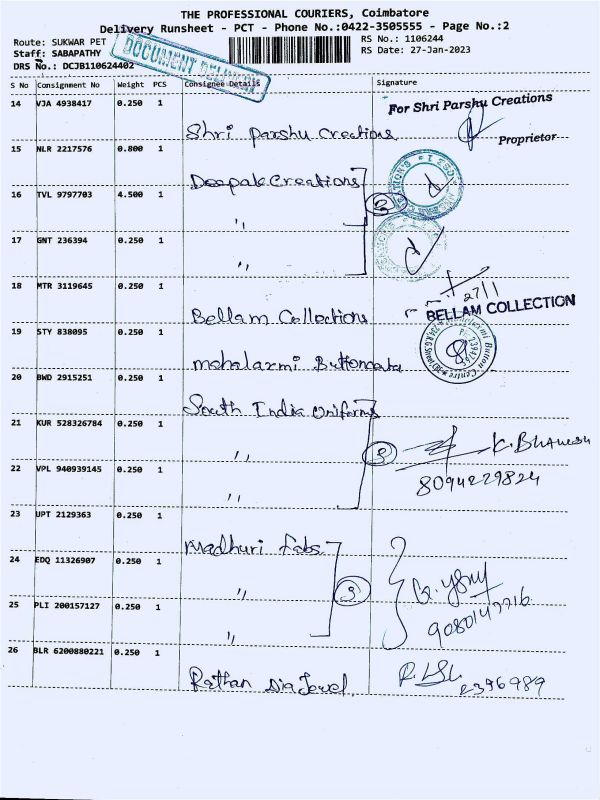 THE PROFESSIONAL COURIERS, Coimbatore
Delivery Runsheet - PCT - Phone No.:0422-3505555 - Page No.:2
Route: SUKWAR PET
RS No.: 1106244
Staff: SABAPATHY
RS Date: 27-Jan-2023
DRS No.: DCJB110624402
DOCUMENT
S No Consignment No Weight PCS Consignee Details Signature
14 VJA 4938417 0.250 1
Shri Parshu Creations
For Shri Parshu Creations
Proprietor
15 NLR 2217576 0.800 1
Deepak Creations
16 TVL 9797703 4.500 1
"
17 GNT 236394 0.250 1
"
18 MTR 3119645 0.250 1
Bellam Collections
27/1
BELLAM COLLECTION
19 STY 838095 0.250 1
mahalaxmi
Button Centre
20 BWD 2915251 0.250 1
South India Uniforms
21 KUR 528326784 0.250 1
"
3
K. Bhavesh
8094229824
22 VPL 940939145 0.250 1
"
23 UPT 2129363 0.250 1
Madhuri Fabs
24 EDQ 11326907 0.250 1
"
3
25 PLI 200157127 0.250 1
"
26 BLR 6200880221 0.250 1
Rathan Dia Jewel
2396989